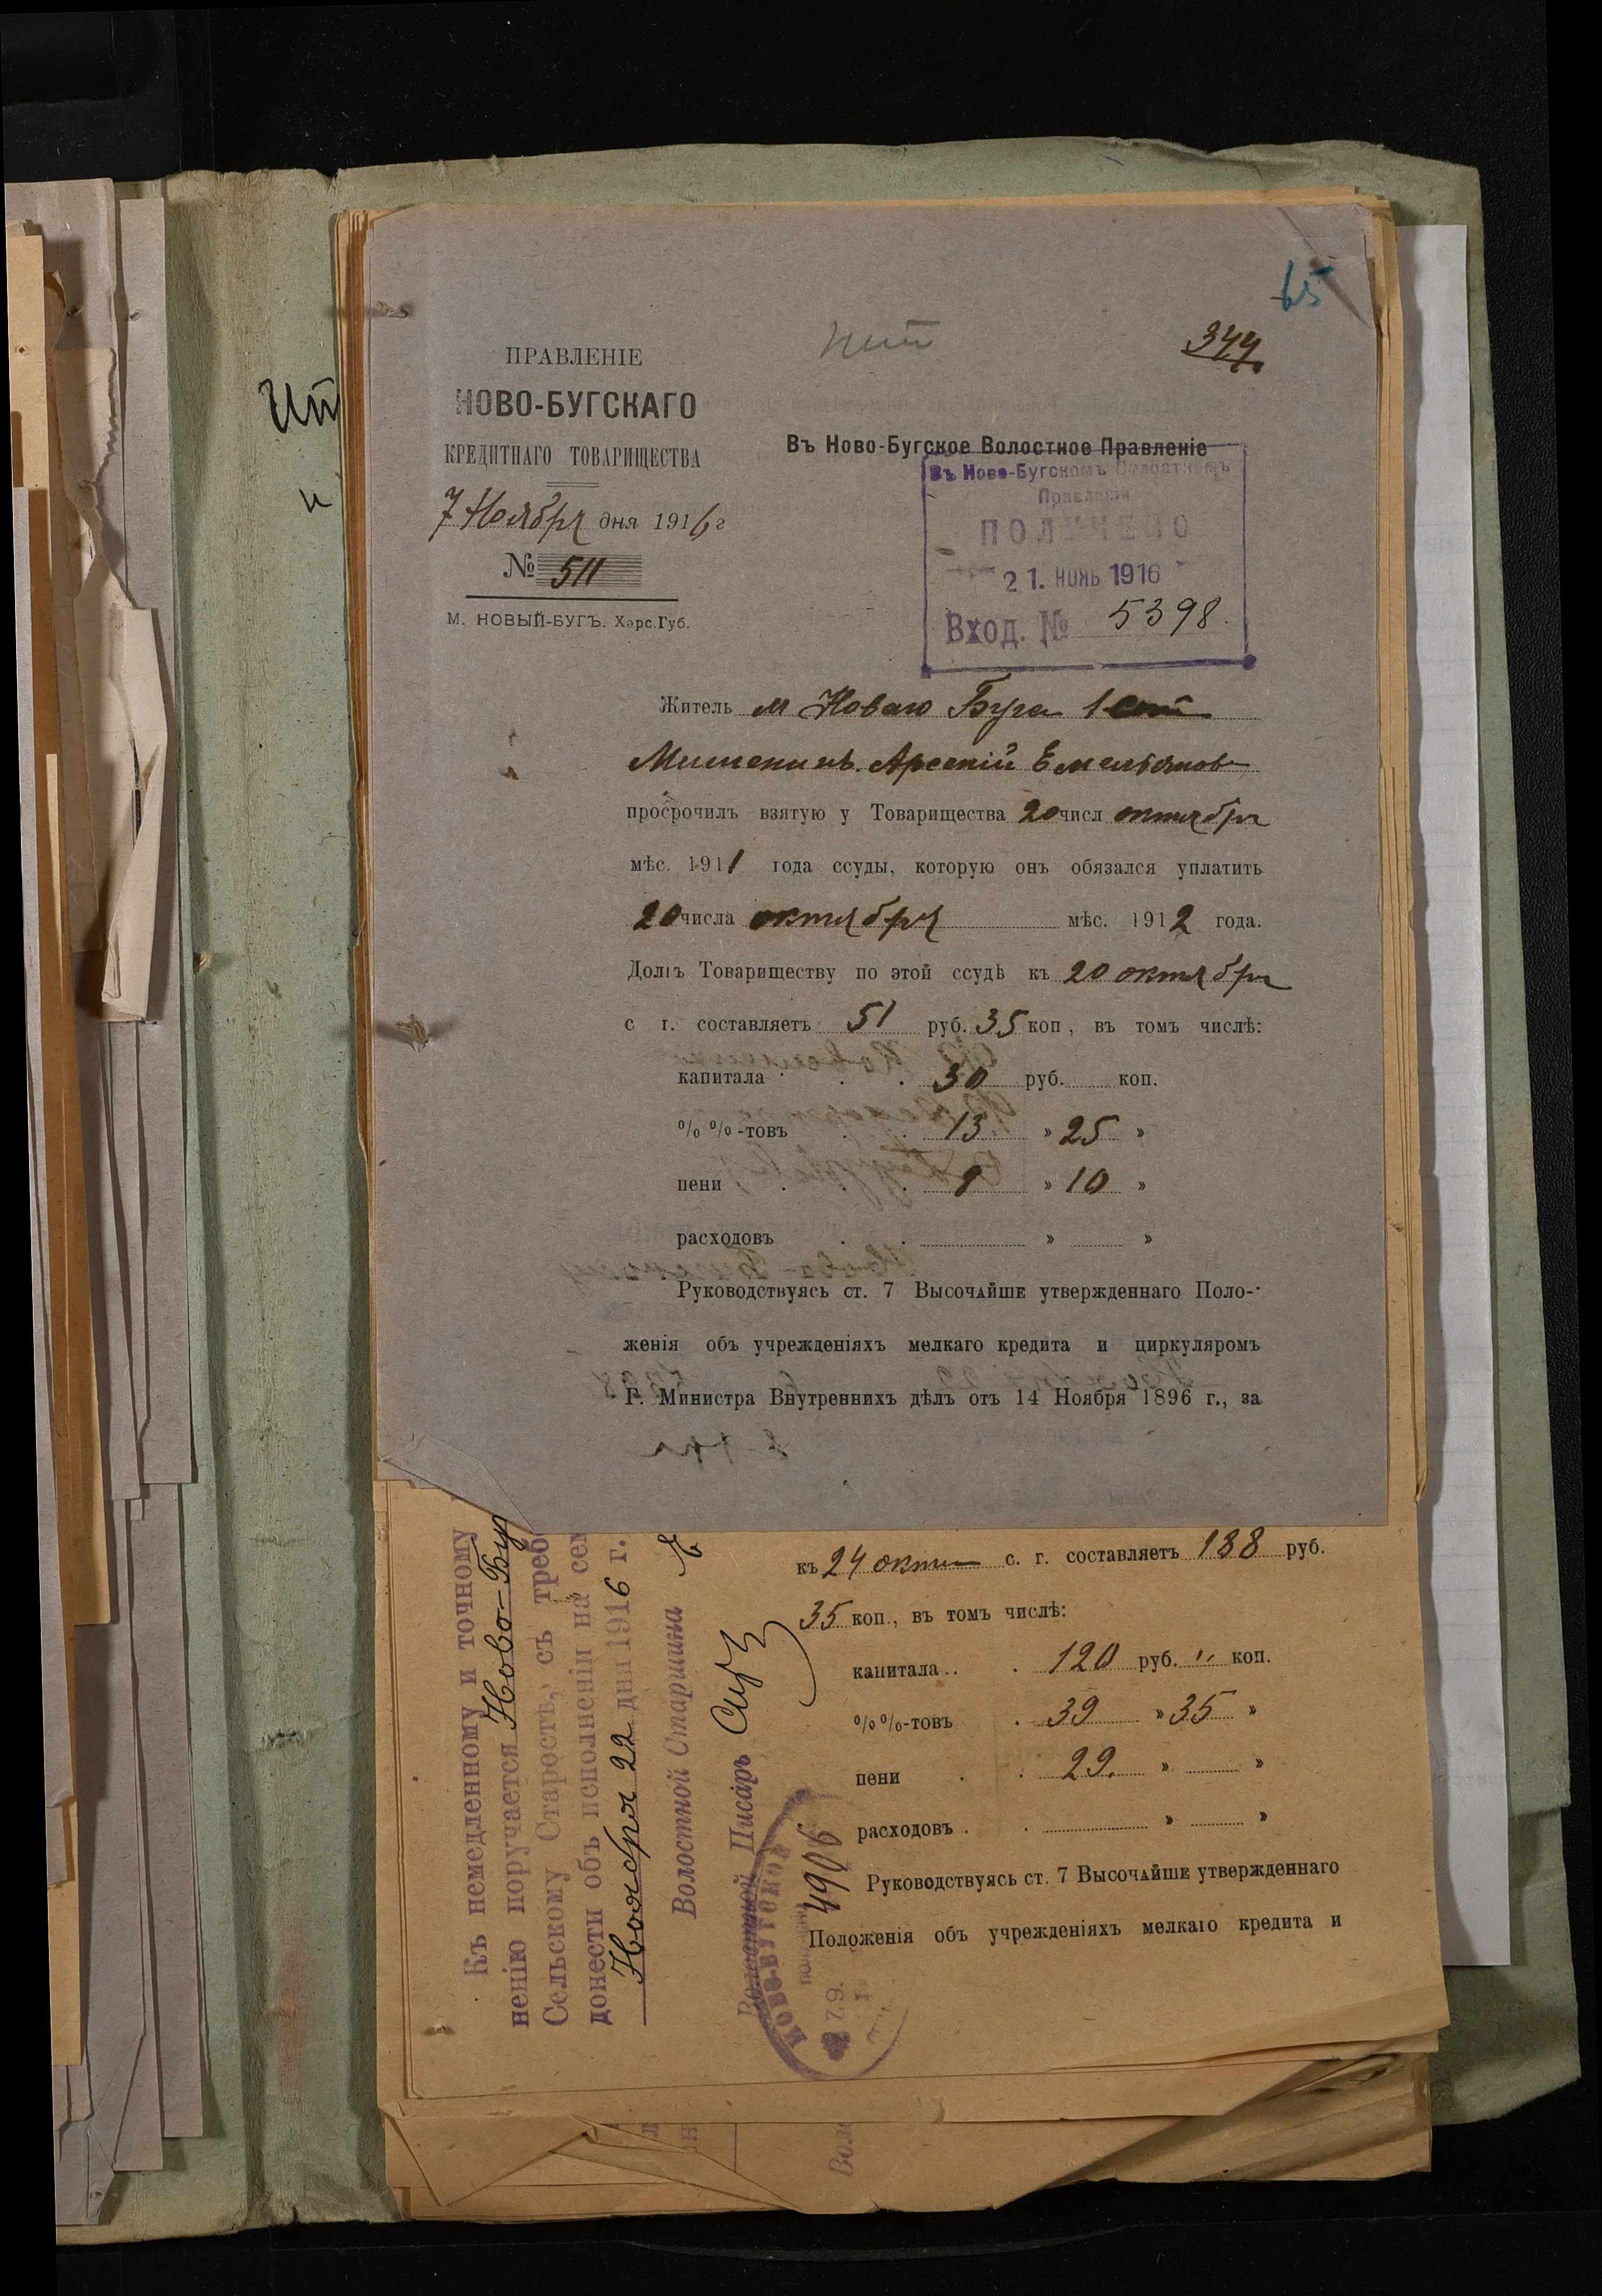 65
344
ПРАВЛЕНІЕ
НОВО-БУГСКАГО
КРЕДИТНАГО ТОВАРИЩЕСТВА
7 Ноября дня 1916 г
№ 511
М. НОВЫЙ-БУГЪ. Херс. Губ.
Въ Ново-Бугское Волостное Правленіе
Въ Ново-Бугскомъ Волостномъ
Правленіи
ПОЛУЧЕНО
21. НОЯБ 1916
Вход. № 5398.
Житель м Новаго Буга 1
Мишенинъ Арсеній Емельянов
просрочилъ взятую у Товарищества 20 числ октября
мѣс. 1911 года ссуды, которую онъ обязался уплатить
20 числа октября мѣс. 1912 года.
Долгъ Товариществу по этой ссудѣ къ 20 октября
с г. составляетъ 51 руб. 35 коп, въ томъ числѣ:
капитала 30 руб. коп.
% %-товъ 13 » 25 »
пени » 10 »
расходовъ » »
Руководствуясь ст. 7 Высочайше утвержденнаго Поло-
женія объ учрежденіяхъ мелкаго кредита и циркуляромъ
Г. Министра Внутреннихъ дѣлъ отъ 14 Ноября 1896 г., за
къ 24 окт с. г. составляетъ 188 руб.
35 коп., въ томъ числѣ:
капитала . . . 120 руб. " коп.
% %-товъ . 39 » 35 »
пени . . 29. » »
расходовъ . . » »
Руководствуясь ст. 7 Высочайше утвержденнаго
Положенія объ учрежденіяхъ мелкаго кредита и
Къ немедленному и точному
ненію поручается Ново-Буг
Сельскому Старостѣ, съ треб
донести объ исполненіи на
Ноября 22 дня 1916 г.
Волостной Старшина
Волостной Писарь
НОВО-БУГСКОЕ
4906